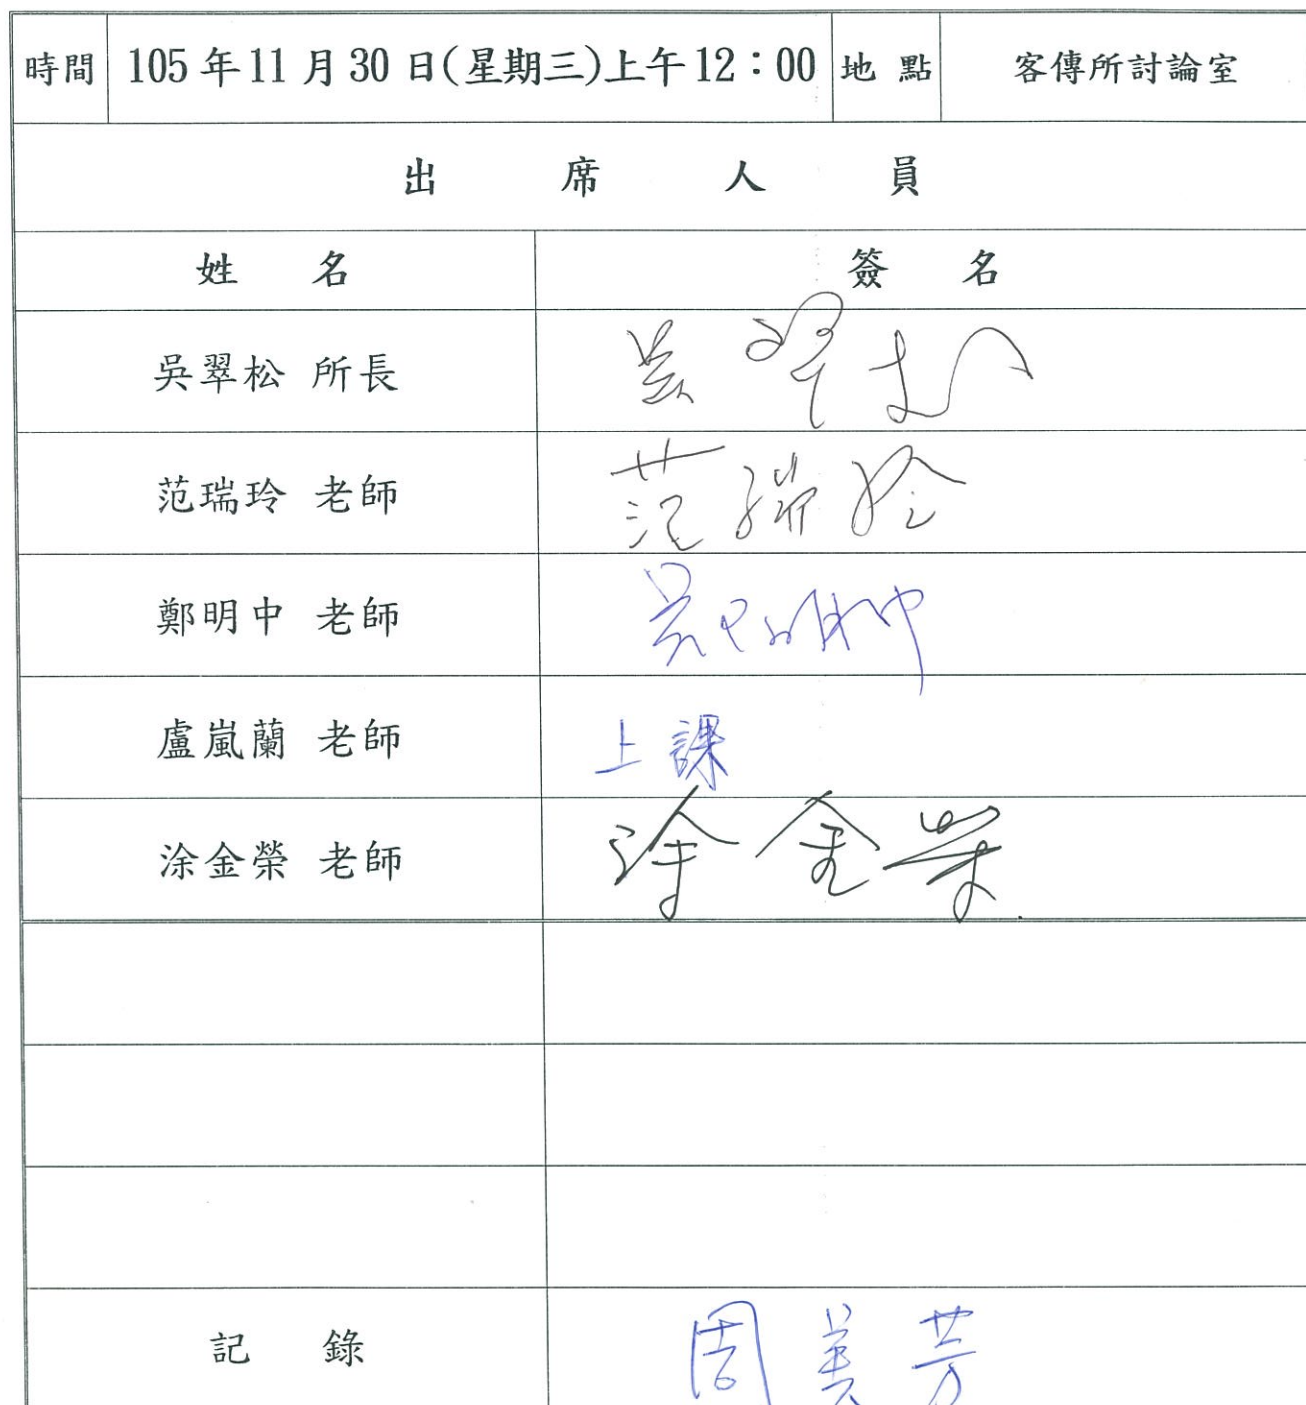 時間 105年11月30日(星期三)上午12：00 地點 客傳所討論室
出席人員
姓名 簽名
吳翠松 所長 吳翠松
范瑞玲 老師 范瑞玲
鄭明中 老師 鄭明中
盧嵐蘭 老師 上課
涂金榮 老師 涂金榮
記錄 周美芳